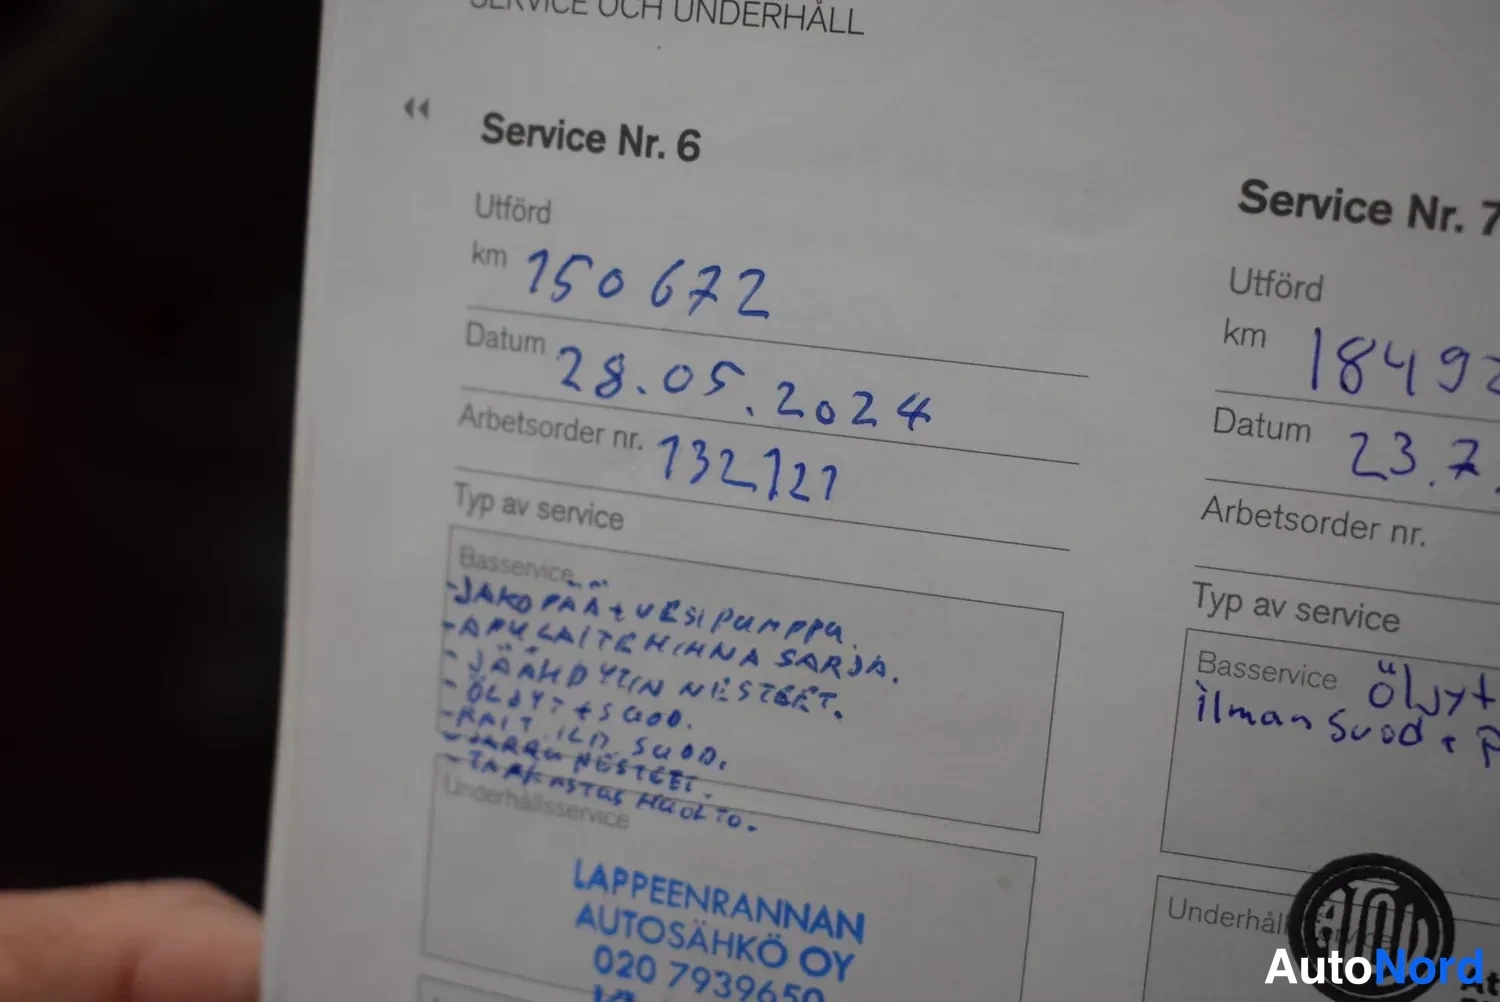 SERVICE OCH UNDERHÅLL
Service Nr. 6
Utförd
km 150 672
Datum 28.05.2024
Arbetsorder nr. 132121
Typ av service
Basservice
-JAKOPÄÄ+VESIPUMPPU.
-APULAITEHIHNA SARJA.
-JÄÄHDYTIN NESTEET.
-ÖLJYT+SUOD.
-RAIT.ILM.SUOD.
-JARRU NESTEET.
-TARKASTUS HUOLTO.
Underhållsservice
LAPPEENRANNAN
AUTOSÄHKÖ OY
020 7939650
Service Nr. 7
Utförd
km 1849
Datum 23.7.
Arbetsorder nr.
Typ av service
Basservice Öljyt
ilman suod +
AutoNord